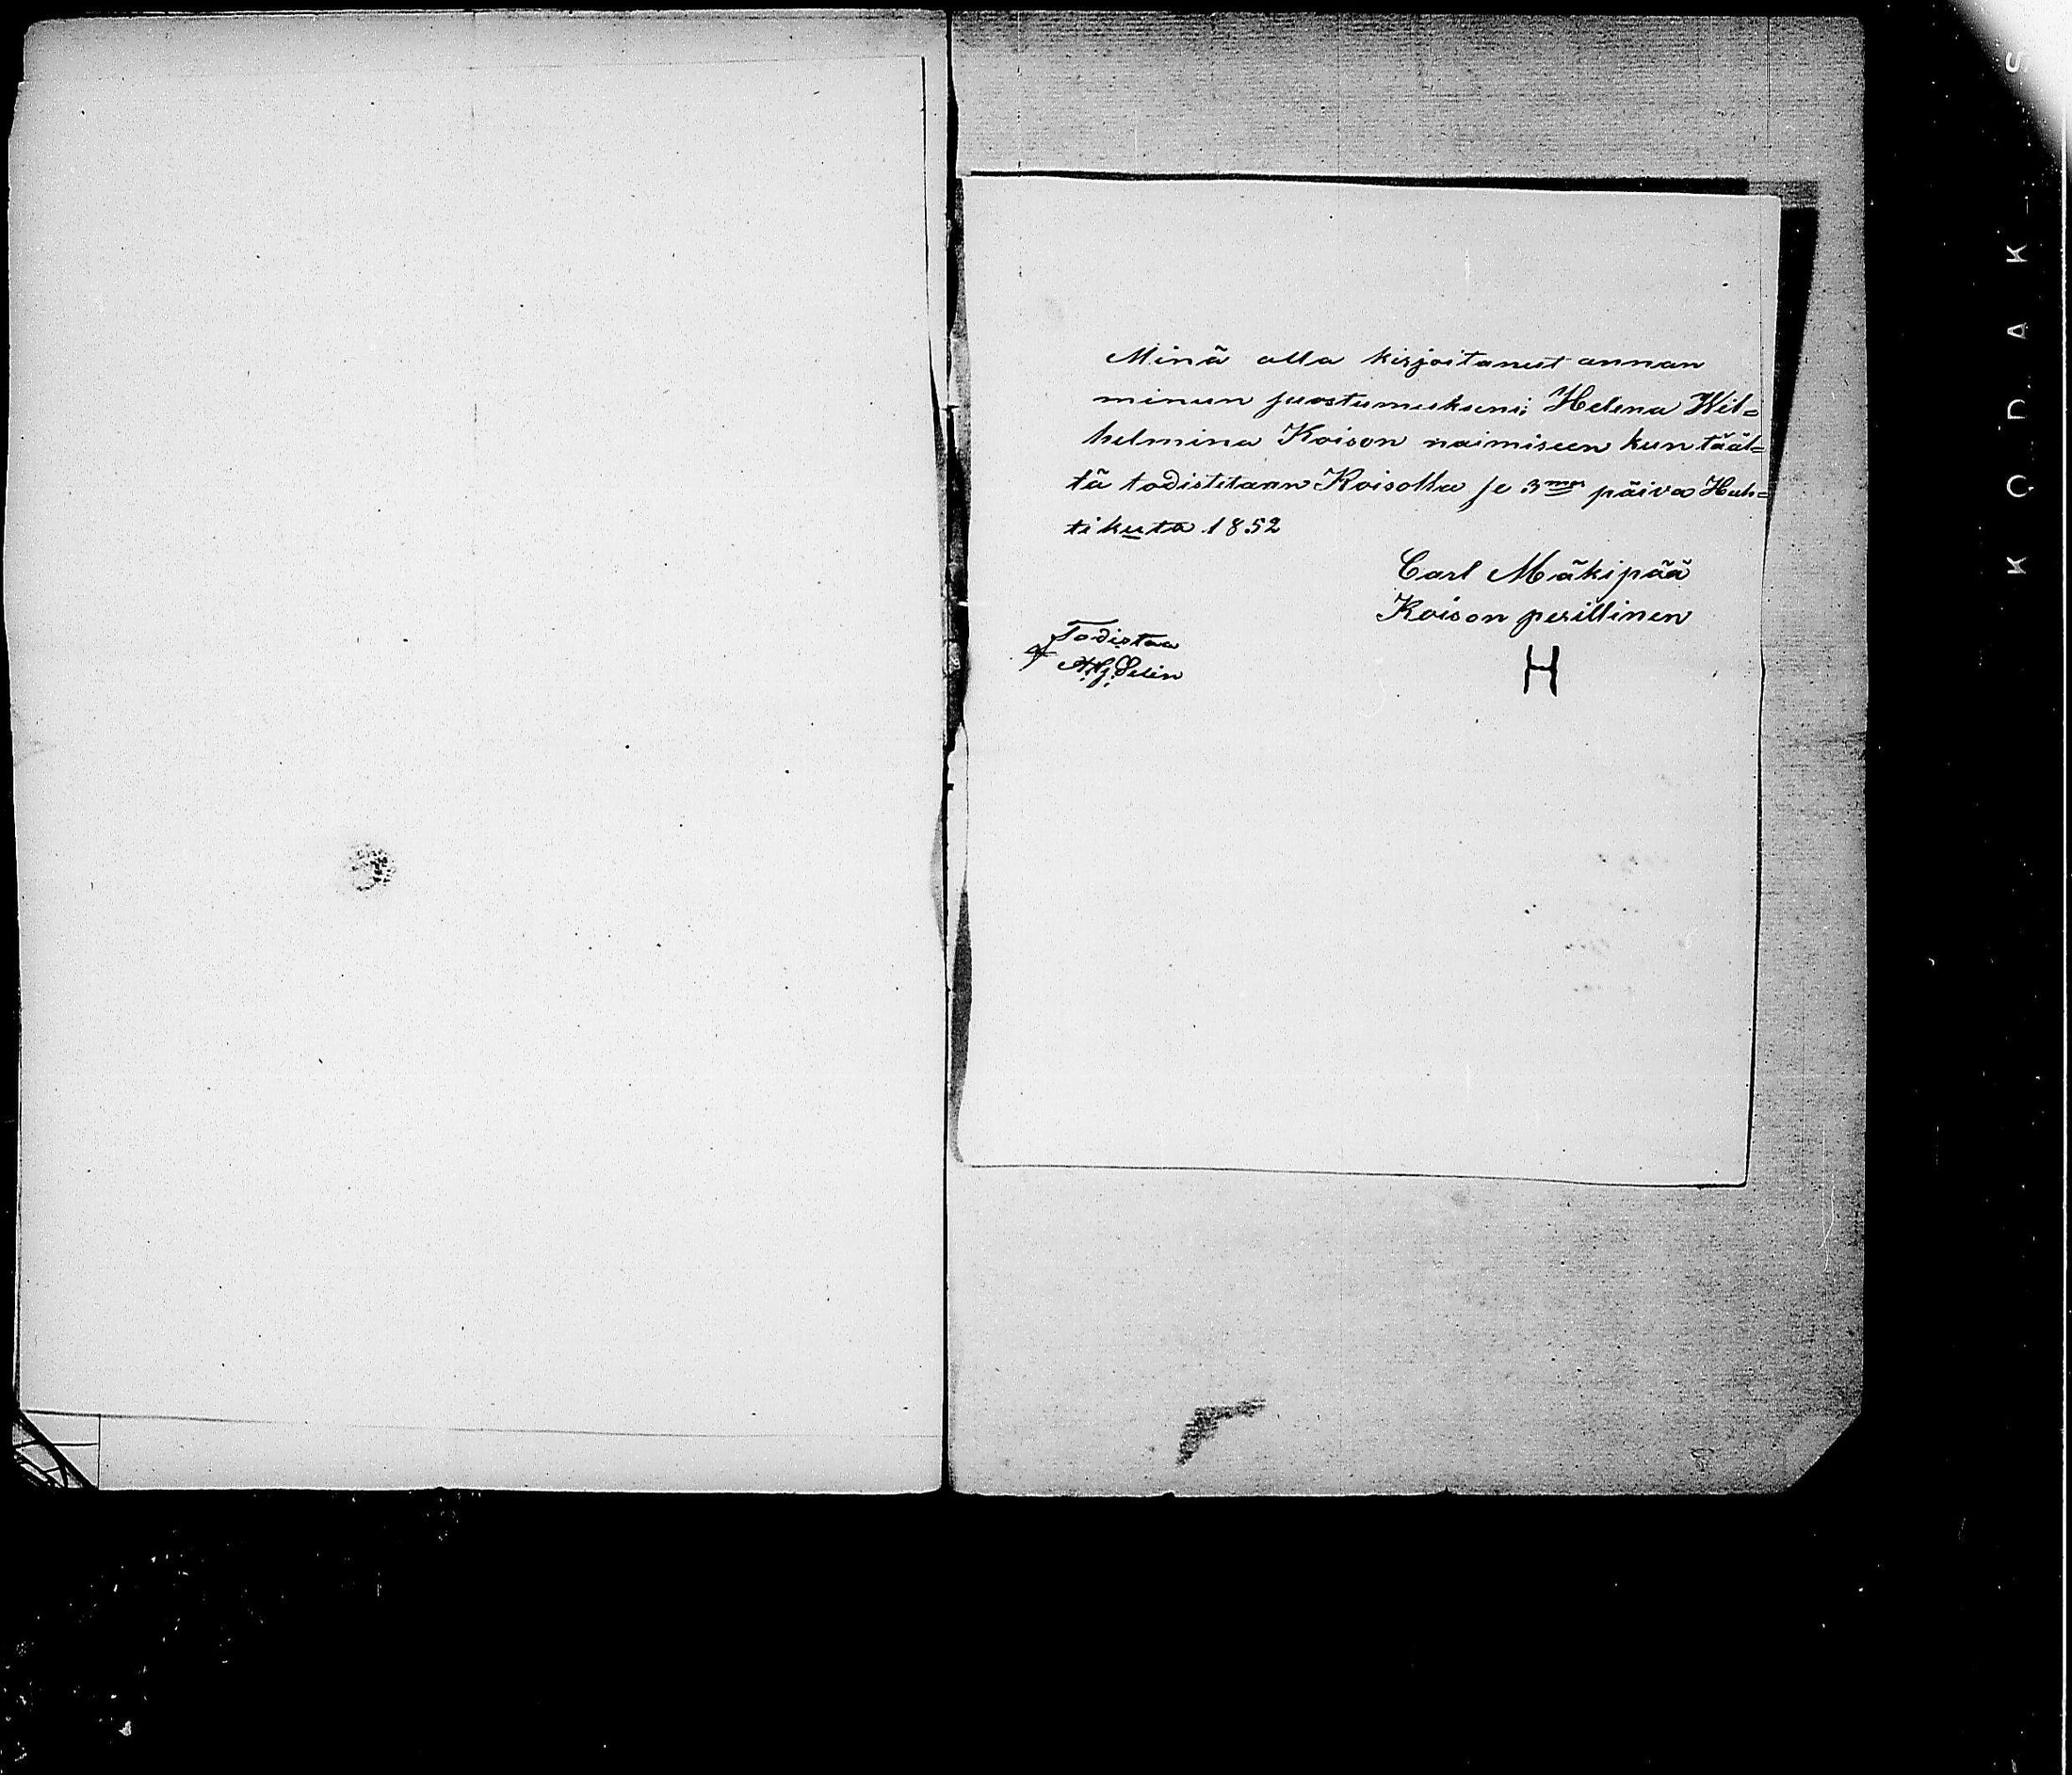 Minä alla kirjoitanut annan
minun suostumukseni Helena Wil=
helmina Koison naimiseen kun tääl=
tä todistetaan Koisolla se 3mas päivä Huh=
tikuta 1852
Carl Mäkipää
Koison perillinen
H
Todistaa
KODAK